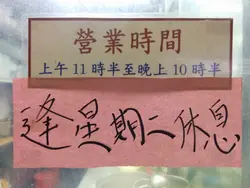 營業時間
上午11時半至晚上10時半
逢星期二休息